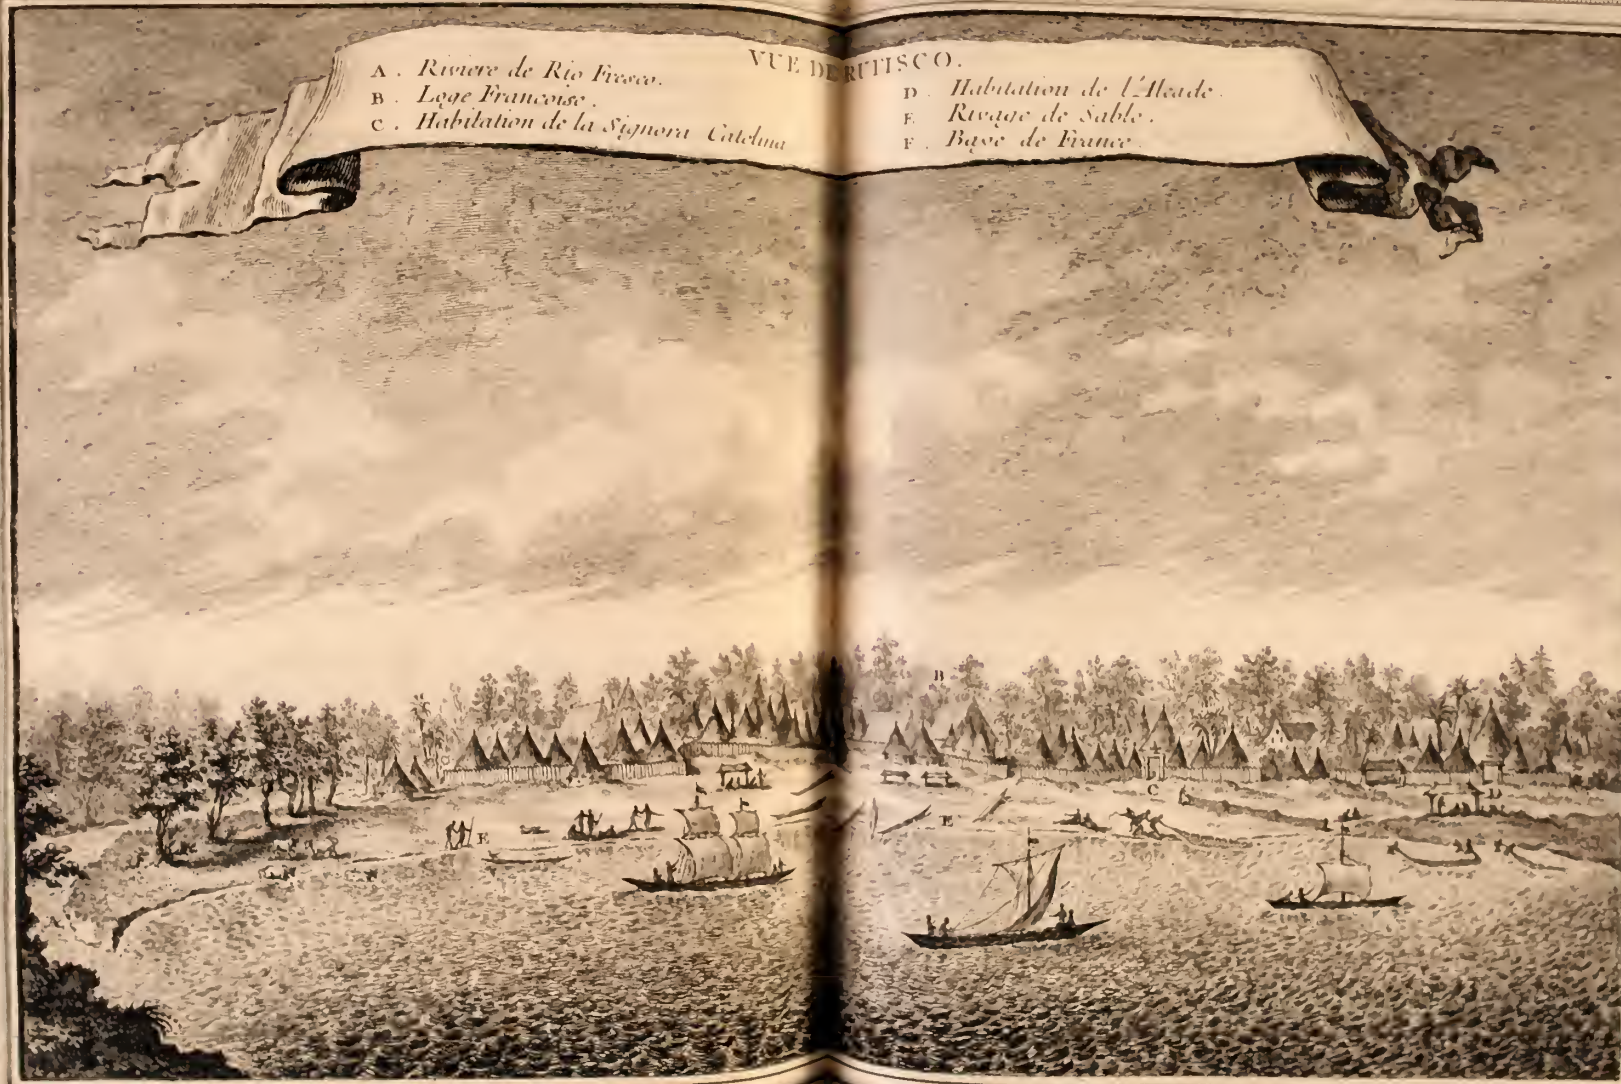 VUE DE RUTISCO.
A. Riviere de Rio Fresco.
B. Loge Francoise.
C. Habitation de la Signora Catelina
D. Habitation de l'Alcade.
E. Rivage de Sable.
F. Baye de France.
B
C
D
E
E